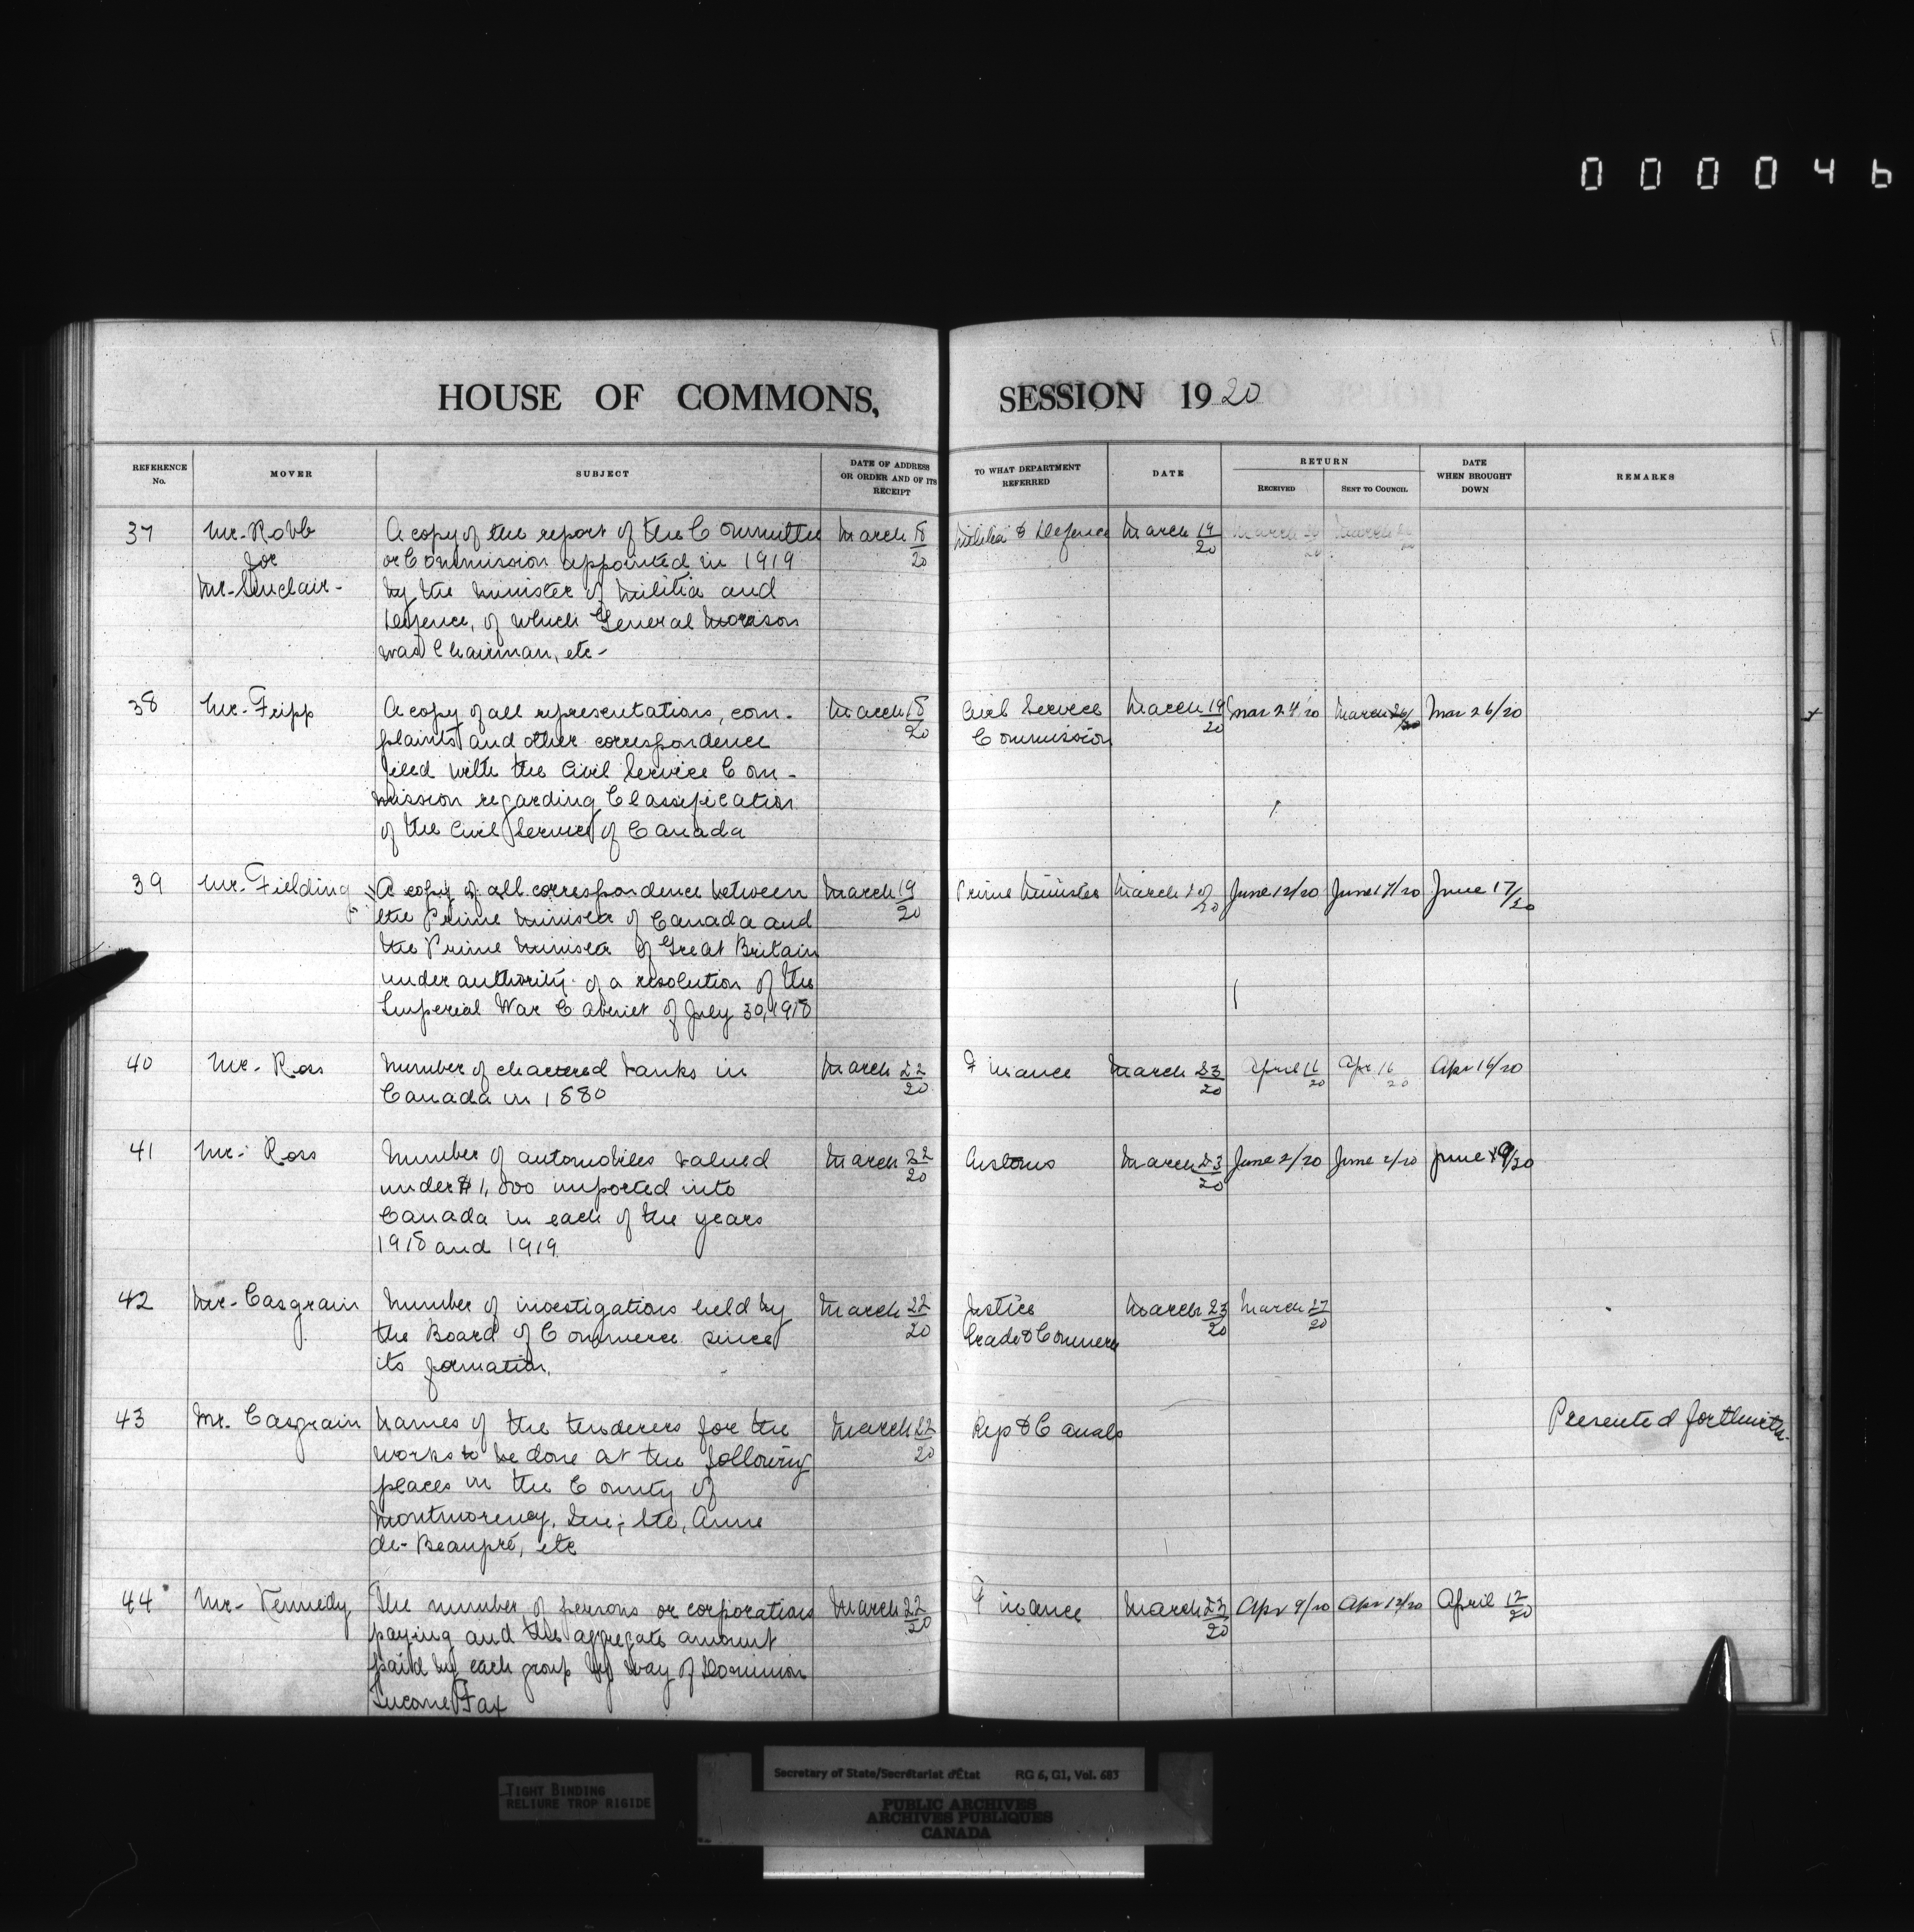 000046
HOUSE OF COMMONS, SESSION 1920
REFERENCE No. MOVER SUBJECT DATE OF ADDRESS OR ORDER AND OF ITS RECEIPT TO WHAT DEPARTMENT REFERRED DATE RETURN RECEIVED SENT TO COUNCIL DATE WHEN BROUGHT DOWN REMARKS
37 Mr. Robb A copy of the report of the Committee March 18/20 Militia & Defence March 19/20
for or Commission appointed in 1919
Mr. Sinclair - by the Minister of Militia and
Defence, of which General Morrison
was Chairman, etc -
38 Mr. Fripp A copy of all representations, com- March 18/20 Civil Service March 19/20 Mar 24/20 March 26/20 Mar 26/20
plaints and other correspondence Commission
filed with the Civil Service Com-
mission regarding Classification
of the Civil Service of Canada
39 Mr. Fielding A copy of all correspondence between March 19/20 Prime Minister March June 12/20 June 17/20 June 17/20
the Prime Minister of Canada and
the Prime Minister of Great Britain
under authority of a resolution of the
Imperial War Cabinet of July 30, 1918
40 Mr. Ross Number of chartered banks in March 22/20 Finance March 23/20 April 16/20 Apr 16/20 Apr 16/20
Canada in 1880
41 Mr. Ross Number of automobiles valued March 22/20 Customs March 23/20 June 2/20 June 2/20 June 9/20
under $1,800 imported into
Canada in each of the years
1918 and 1919
42 Mr. Casgrain Number of investigations held by March 22/20 Justice March 23/20 March 27/20
the Board of Commerce since Trade & Commerce
its formation.
43 Mr. Casgrain Names of the tenderers for the March 22/20 Rys & Canals Presented forthwith.
works to be done at the following
places in the County of
Montmorency, Que; Ste, Anne
de-Beaupré, etc
44 Mr. Kennedy The number of persons or corporations March 22/20 Finance March 23/20 Apr 9/20 Apr 12/20 April 12/20
paying and the aggregate amount
paid by each group by way of Dominion
Income Tax
TIGHT BINDING
RELIURE TROP RIGIDE
Secretary of State/Secrétariat d'État RG 6, G1, Vol. 683
PUBLIC ARCHIVES
ARCHIVES PUBLIQUES
CANADA